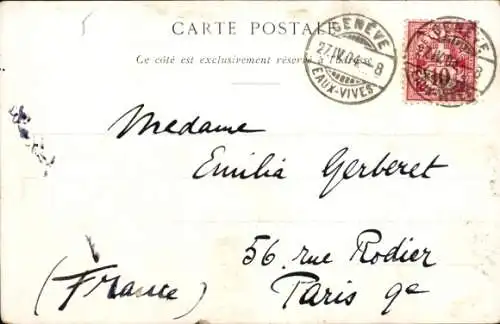 CARTE POSTALE
Ce côté est exclusivement réservé à l'adresse
GENÈVE
27.IV.04.–8
EAUX-VIVES
10
Madame
Emilia Gerberet
56 rue Rodier
(France) Paris 9e